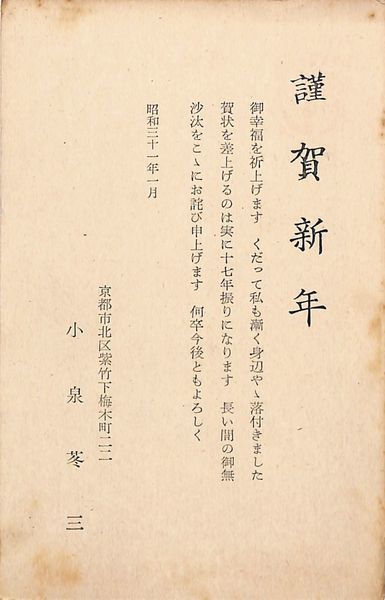 謹賀新年
御幸福を祈上げます　くだって私も漸く身辺やゝ落付きました
賀状を差上げるのは実に十七年振りになります　長い間の御無
沙汰をこゝにお詫び申上げます　何卒今後ともよろしく
昭和三十一年一月
京都市北区紫竹下梅木町二二
小泉苳三